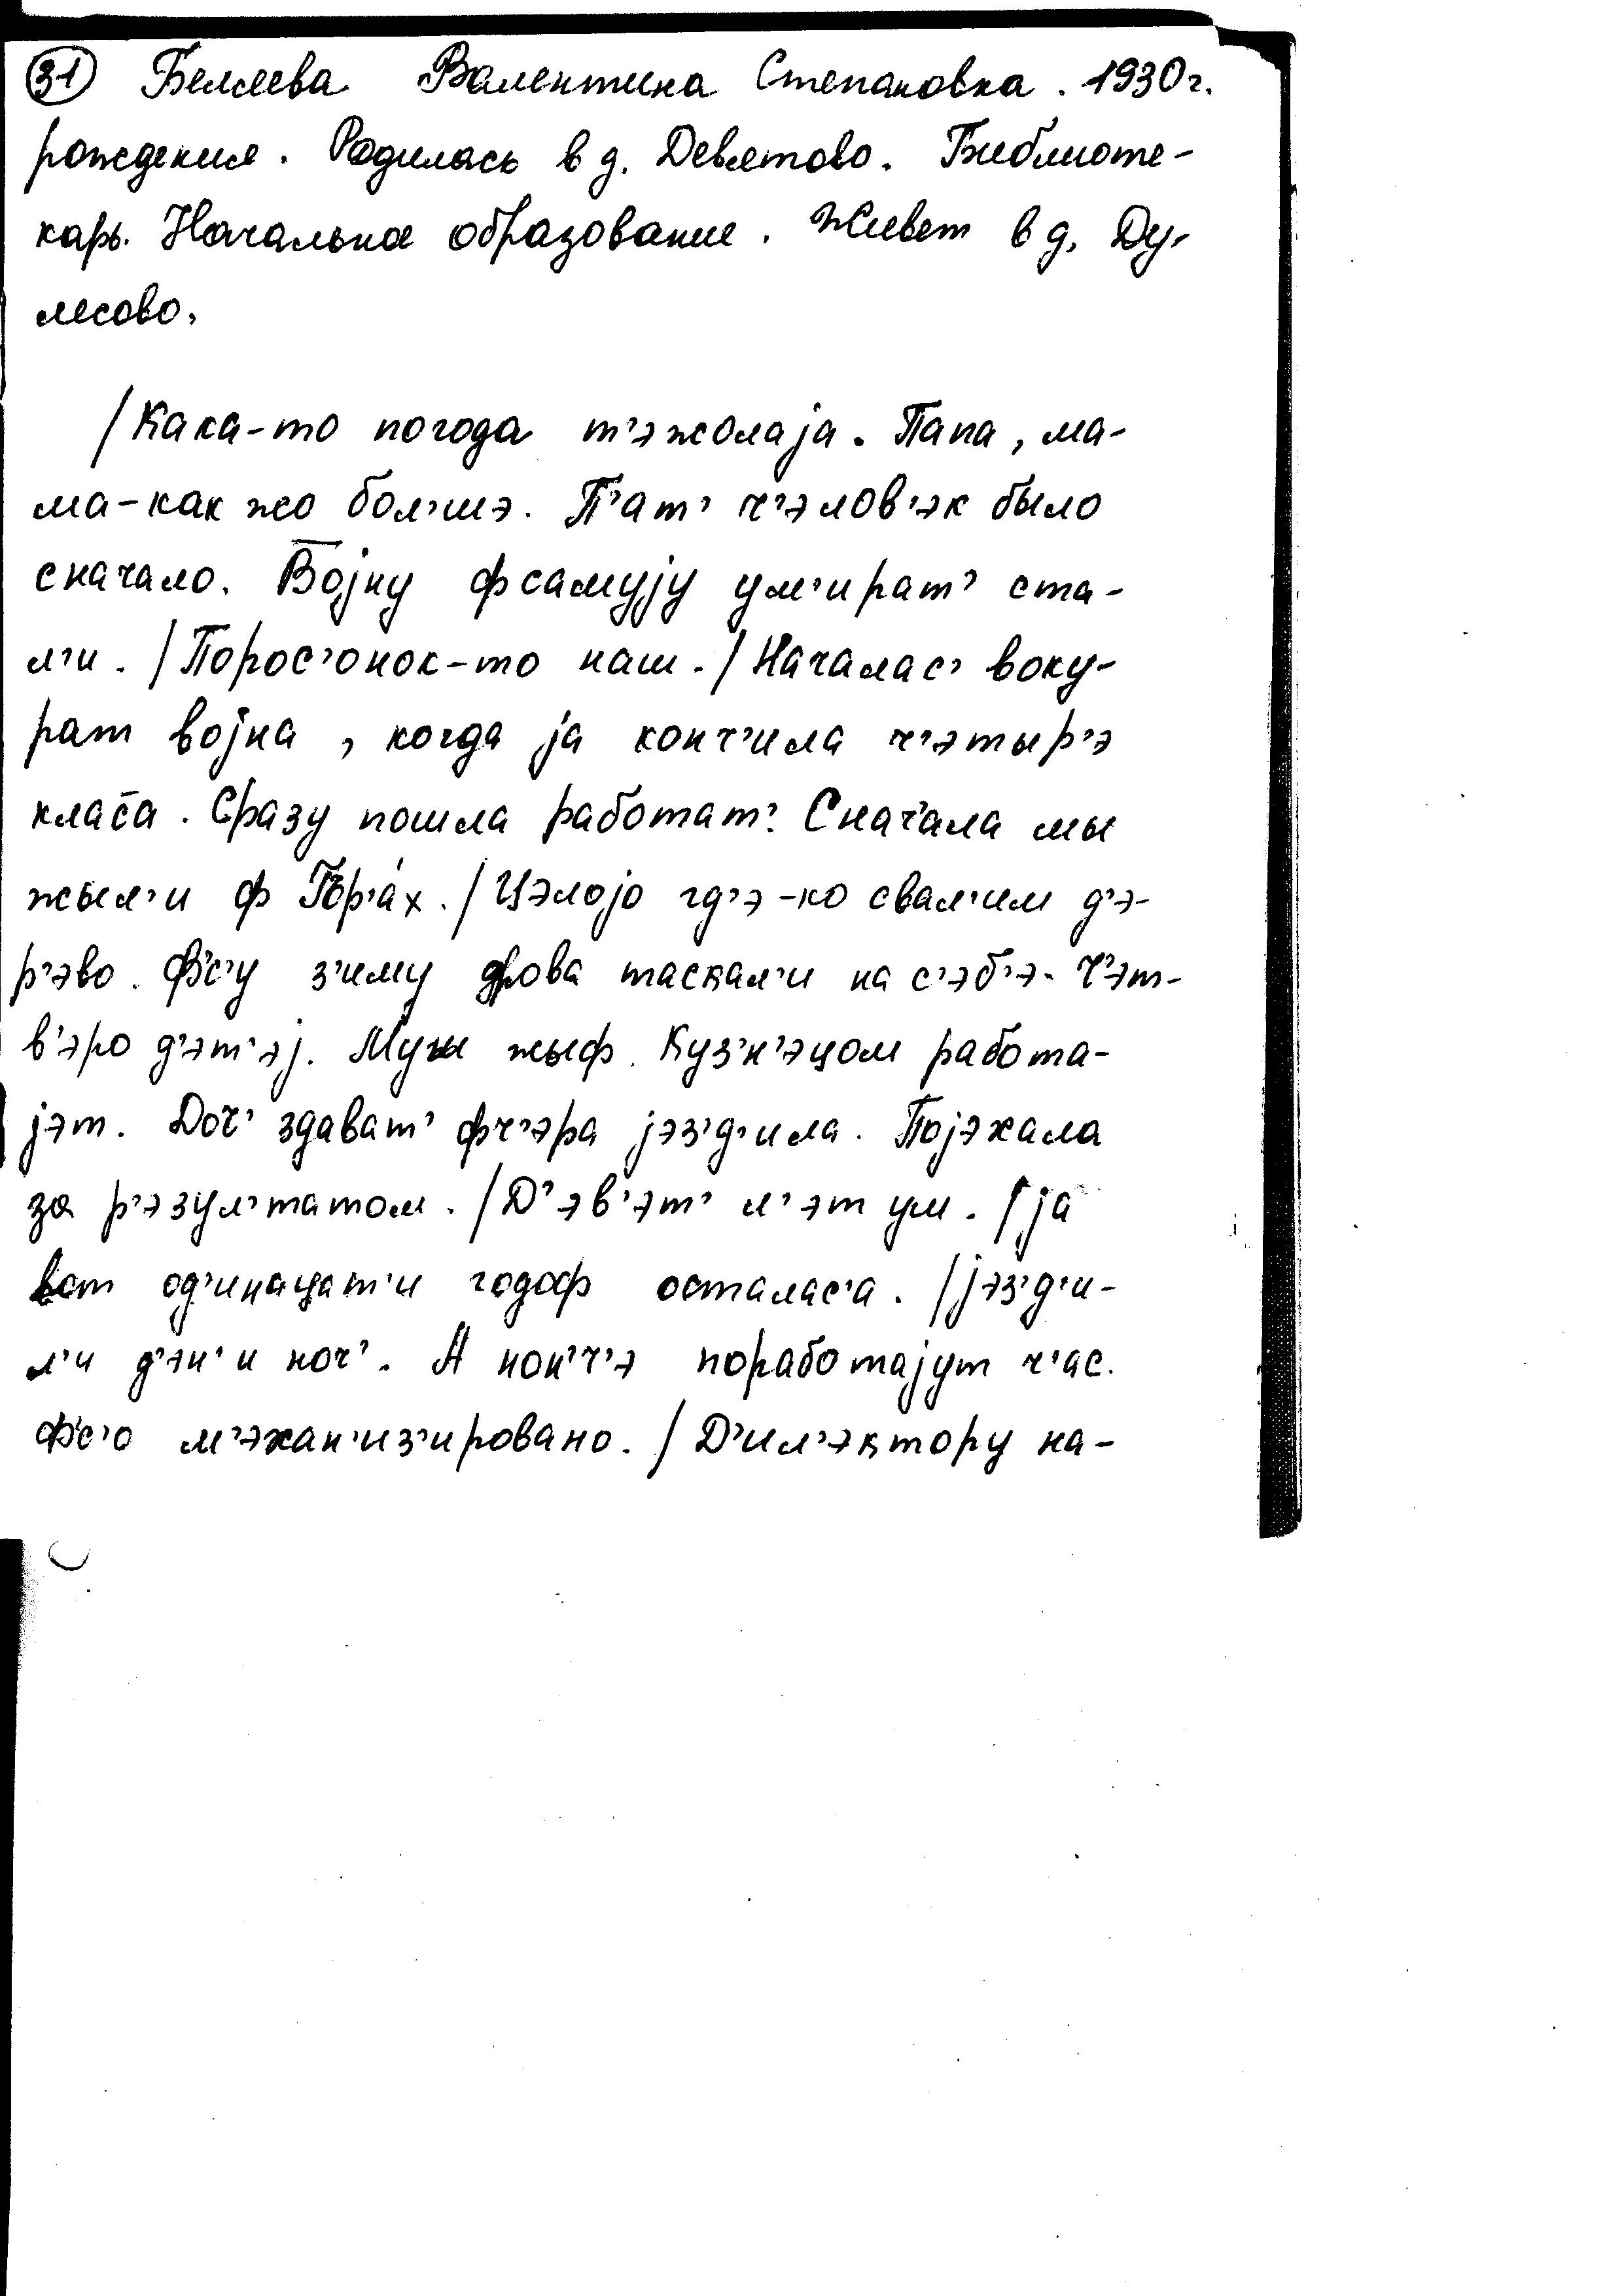 (31) Беляева Валентина Степановна. 1930 г.
рождения. Родилась в д. Девятово. Библиоте-
карь. Начальное образование. Живет в д. Ду-
лесово.
/Кака-то погода т'эжолаjа. Папа, ма-
ма-как жо бол'шэ. П'ат' ч'эловэ'к было
сначало. Војну ф самују ум'ират' ста-
л'и. /Порос'онок-то наш. /Началас' воку-
рат војна, когда ја конч'ила ч'этыр'э
класа. Сразу пошла работат'.Снач'ала мы
жыл'и ф Гор'а́х. /Цэлојо гд'э-ко свал'им д'э-
р'эво. Фс'у з'иму дрова таскал'и на с'эб'э. Ч'эт-
в'эро д'эт'эј. Муж жыф. Куз'н'эцом работа-
јэт. Доч' здават' фч'эра јэз'д'ила. Појэхала
за р'эзул'татом. /Д'эв'эт' л'эт ум. /Ја
вот од'инацат'и годоф осталас'а. /Јэз'д'и-
л'и д'эн' и ноч'. А нон'ч'э поработајут ч'ас.
Фс'о м'эхан'из'ировано. /Д'ил'эктору на-